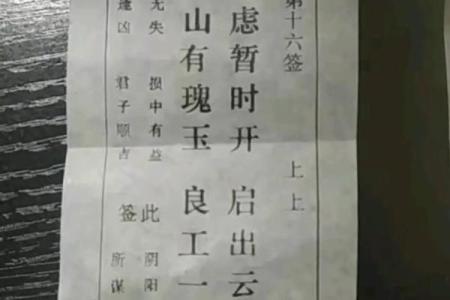 第十六签 上上
虑暂时开 启出云
山有瑰玉 良工一
无失 损中有益 此 阴阳
逢凶 君子顺吉 签 所谋